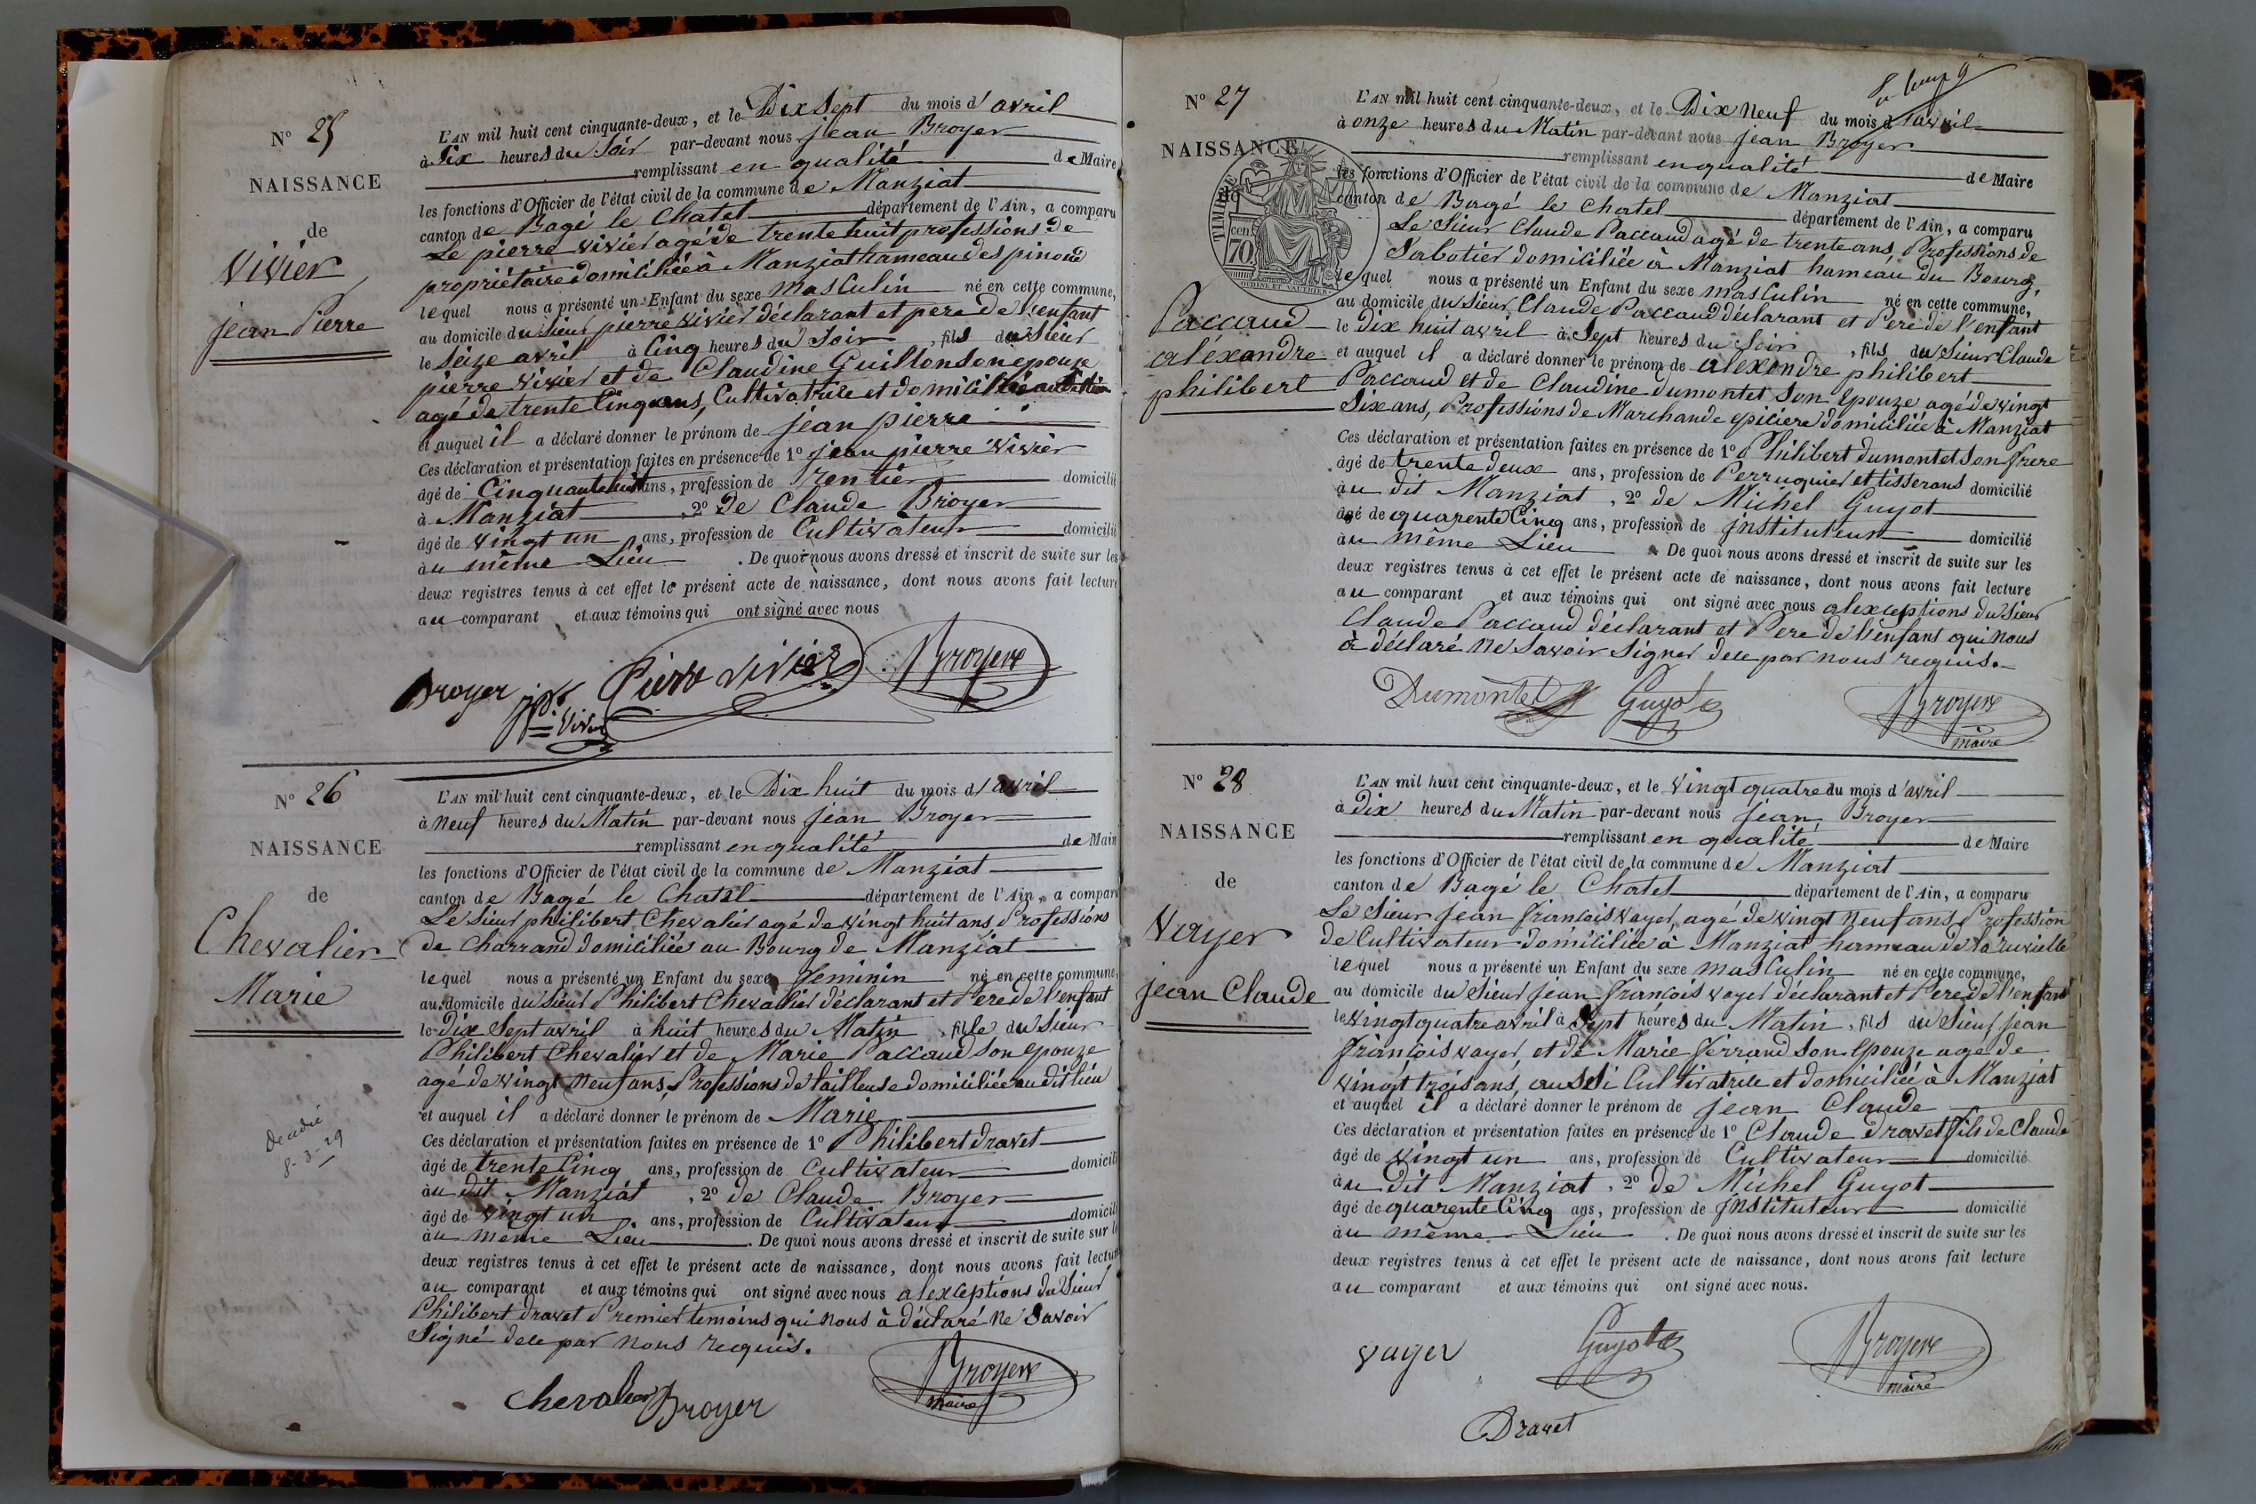 N° 25
NAISSANCE
de
Vivier
jean Pierre
L'AN mil huit cent cinquante-deux, et le Dix Sept du mois d'avril
à Six heures du Soir par-devant nous jean Broyer
remplissant en qualité de Maire
les fonctions d'Officier de l'état civil de la commune de Manziat
canton de Bagé le Chatel département de l'Ain, a comparu
Le pierre vivier agé de trente huit professions de
propriétaire domiciliée à Manziat hameau des pinoud
lequel nous a présenté un Enfant du sexe masculin né en cette commune,
au domicile du Sieur pierre vivier déclarant et pere de l'enfant
le Seize avril à Cinq heures du Soir, fils du Sieur
pierre vivier et de Claudine Guillon son epouze
agé de trente Cinq ans, Cultivatrice et domiciliée
et auquel il a déclaré donner le prénom de jean pierre
Ces déclaration et présentation faites en présence de 1° jean pierre vivier
âgé de Cinquante huit ans, profession de rentier domicilié
à Manziat, 2° De Claude Broyer
âgé de vingt un ans, profession de Cultivateur domicilié
àu même Lieu. De quoi nous avons dressé et inscrit de suite sur les
deux registres tenus à cet effet le présent acte de naissance, dont nous avons fait lecture
au comparant et aux témoins qui ont signé avec nous
Broyer Pierre vivier Broyer
Vivier
N° 26
NAISSANCE
de
Chevalier
Marie
Decédé
8-3-29
L'AN mil huit cent cinquante-deux, et le Dix huit du mois d'avril
à Neuf heures du Matin par-devant nous jean Broyer
remplissant en qualité de Maire
les fonctions d'Officier de l'état civil de la commune de Manziat
canton de Bagé le Chatel département de l'Ain, a compar
Le Sieur philibert Chevalier agé de vingt huit ans, Professions
de Charrand domiciliée au Bourg de Manziat
lequel nous a présenté un Enfant du sexe feminin né en cette commune,
au domicile du Sieur Philibert Chevalier déclarant et Pere de l'enfant
le dix Sept avril à huit heures du Matin, fille du Sieur
Philibert Chevalier et de Marie Paccaud son epouze
agé de vingt Neuf ans, Professions de tailleuse domiciliée au dit lieu
et auquel il a déclaré donner le prénom de Marie
Ces déclaration et présentation faites en présence de 1° Philibert dravet
âgé de trente Cinq ans, profession de Cultivateur domicili
àu dit Manziat, 2° de Claude Broyer
âgé de vingt un ans, profession de Cultivateur domicili
àu même Lieu. De quoi nous avons dressé et inscrit de suite sur le
deux registres tenus à cet effet le présent acte de naissance, dont nous avons fait lecture
au comparant et aux témoins qui ont signé avec nous alexceptions du Sieur
Philibert dravet Premier temoins qui nous à déclaré Ne Savoir
Signé dele par nous requis.
chevalier Broyer Broyer
maire
N° 27
NAISSANCE
TIMBRE
70 cen
Paccaud
aléxandre
philibert
L'AN mil huit cent cinquante-deux, et le Dix Neuf du mois d'avril
à onze heures du Matin par-devant nous jean Broyer
remplissant en qualité de Maire
les fonctions d'Officier de l'état civil de la commune de Manziat
canton de Bagé le Chatel département de l'Ain, a comparu
Le Sieur Claude Paccaud agé de trente ans, Professions de
Sabotier domiciliée à Manziat hameau du Bourg,
lequel nous a présenté un Enfant du sexe masculin né en cette commune,
au domicile du Sieur Claude Paccaud déclarant et Pere de l'enfant
le Dix huit avril à Sept heures du Soir, fils du Sieur Claude
et auquel il a déclaré donner le prénom de alexandre philibert
Paccaud et de Claudine dumontet Son Epouze agé de vingt
Six ans, Professions de Marchande epiciere domiciliée à Manziat
Ces déclaration et présentation faites en présence de 1° Philibert dumontet Son frere
âgé de trente deux ans, profession de Perruquier et tisserand domicilié
àu dit Manziat, 2° de Michel Guyot
âgé de quarente Cinq ans, profession de instituteur domicilié
àu même Lieu. De quoi nous avons dressé et inscrit de suite sur les
deux registres tenus à cet effet le présent acte de naissance, dont nous avons fait lecture
au comparant et aux témoins qui ont signé avec nous alexceptions du Sieur
Claude Paccaud déclarant et Pere de l'enfant qui Nous
à déclaré Ne Savoir Signer dele par nous requis.
Dumontet Guyot Broyer
maire
N° 28
NAISSANCE
de
Vayer
jean Claude
L'AN mil huit cent cinquante-deux, et le Vingt quatre du mois d'avril
à Dix heures du Matin par-devant nous jean Broyer
remplissant en qualité de Maire
les fonctions d'Officier de l'état civil de la commune de Manziat
canton de Bagé le Chatel département de l'Ain, a comparu
Le Sieur jean francois vayer, agé de vingt Neuf ans, Profession
de Cultivateur domiciliée à Manziat hameau de
lequel nous a présenté un Enfant du sexe masculin né en cette commune,
au domicile du Sieur jean francois vayer déclarant et Pere de l'enfant
le vingt quatre avril à Sept heures du Matin, fils du Sieur jean
francois vayer et de Marie ferrand Son Epouze agé de
vingt trois ans, aussi Cultivatrice et domiciliée à Manziat
et auquel il a déclaré donner le prénom de jean Claude
Ces déclaration et présentation faites en présence de 1° Claude dravet fils de Claude
âgé de vingt un ans, profession de Cultivateur domicilié
àu dit Manziat, 2° de Michel Guyot
âgé de quarente Cinq ans, profession de instituteur domicilié
àu même Lieu. De quoi nous avons dressé et inscrit de suite sur les
deux registres tenus à cet effet le présent acte de naissance, dont nous avons fait lecture
au comparant et aux témoins qui ont signé avec nous.
vayer Guyot Broyer
maire
Dravet